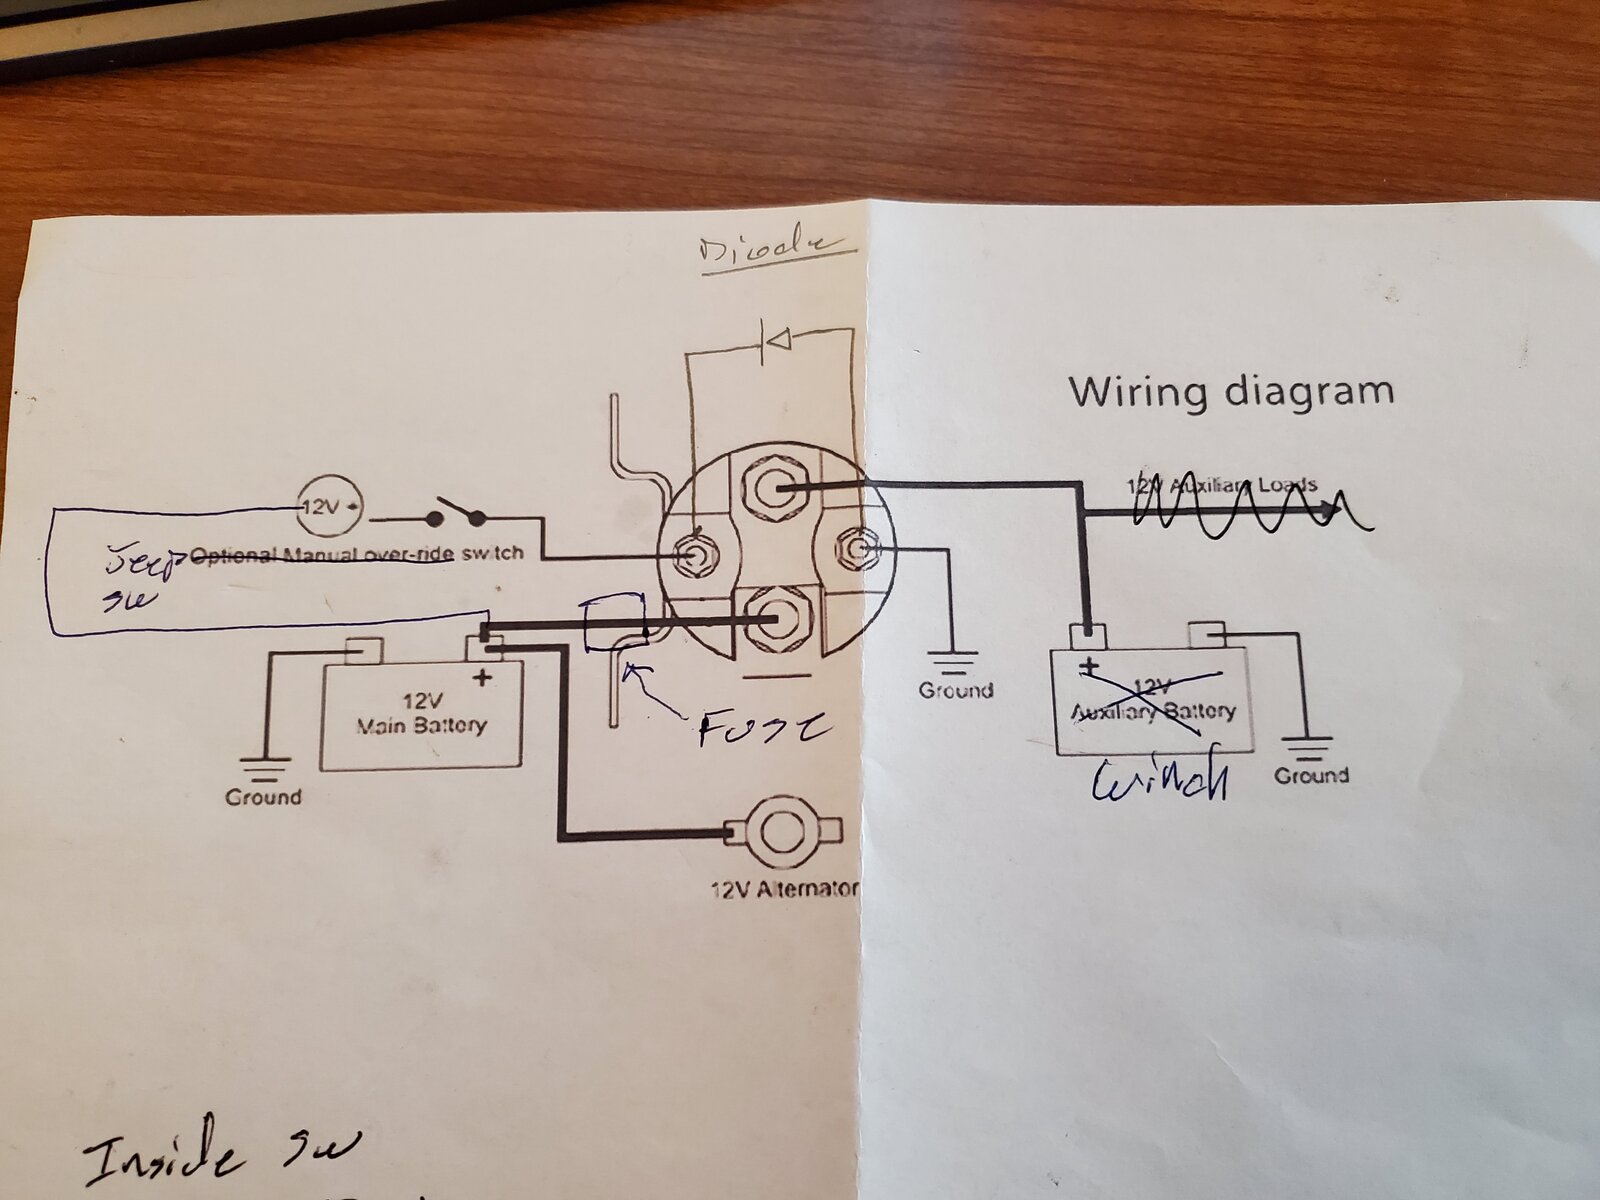 Diode
Wiring diagram
12V Auxiliary Loads
12V +
Jeep Optional Manual over-ride switch
sw
12V
Main Battery
+
Ground
Fuse
12V Alternator
Ground
+
12V
Auxiliary Battery
Winch
Ground
Inside sw